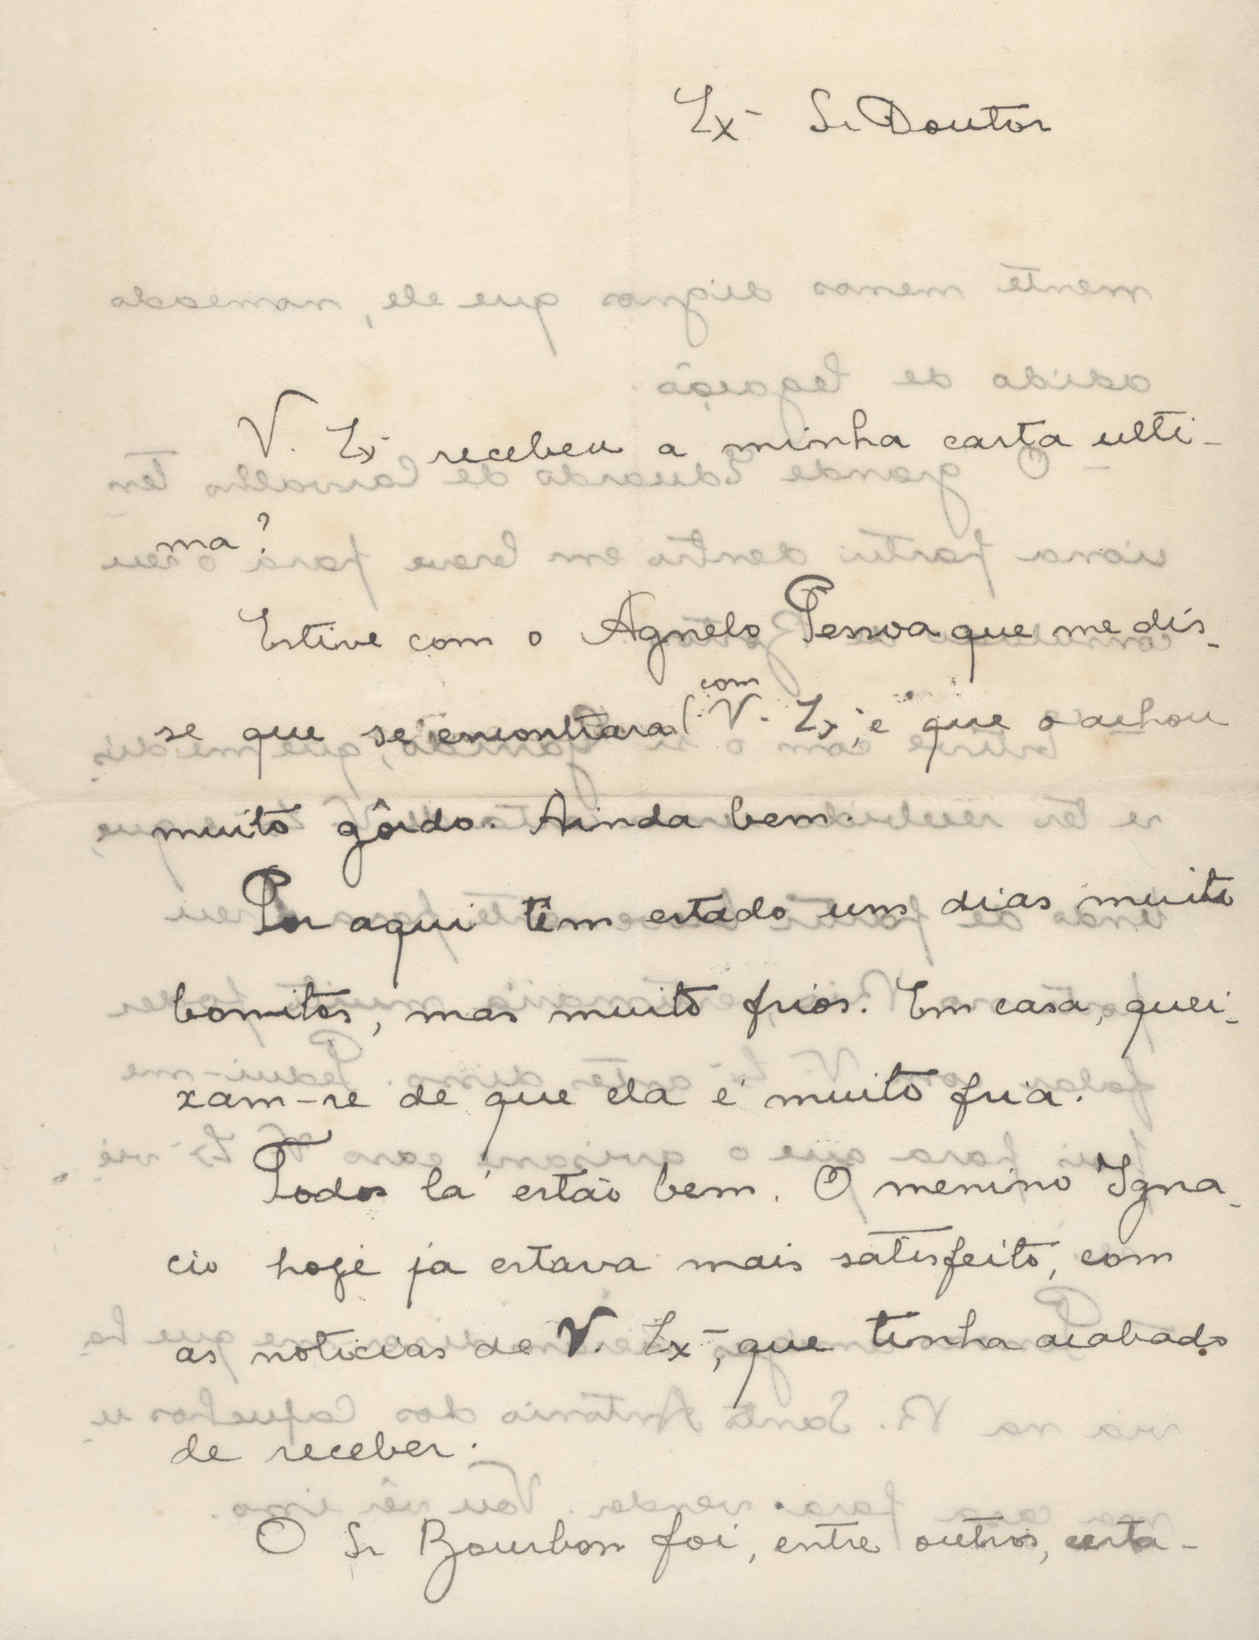 Ex- Sr Doutor
V. Ex- recebeu a minha carta ulti-
ma?
Estive com o Agnelo Pessoa que me dis-
se que se encontrara com V. Ex- e que o achou
muito gôrdo. Ainda bem.
Por aqui têm estado uns dias muito
bonitos, mas muito frios. Em casa, quei-
xam-se de que ela é muito fria.
Todos lá estão bem. O menino Igna-
cio hoje já estava mais satisfeito, com
as noticias de V. Ex-, que tinha acabado
de receber.
O Sr Bourbon foi, entre outros, certa-